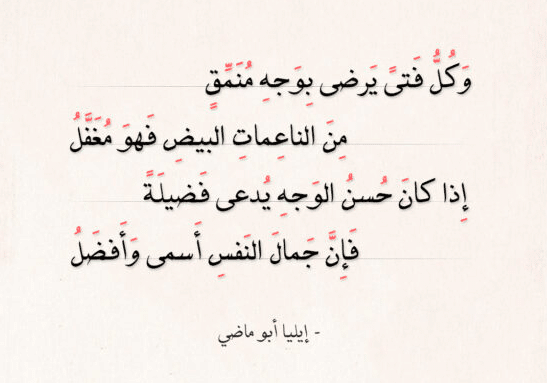 وَكُلُّ فَتىً يَرضى بِوَجهِ مُنَمَّقٍ
مِنَ الناعِماتِ البيضِ فَهوَ مُغَفَّلُ
إِذا كانَ حُسنُ الوَجهِ يُدعى فَضيلَةً
فَإِنَّ جَمالَ النَفسِ أَسمى وَأَفضَلُ
- إيليا أبو ماضي